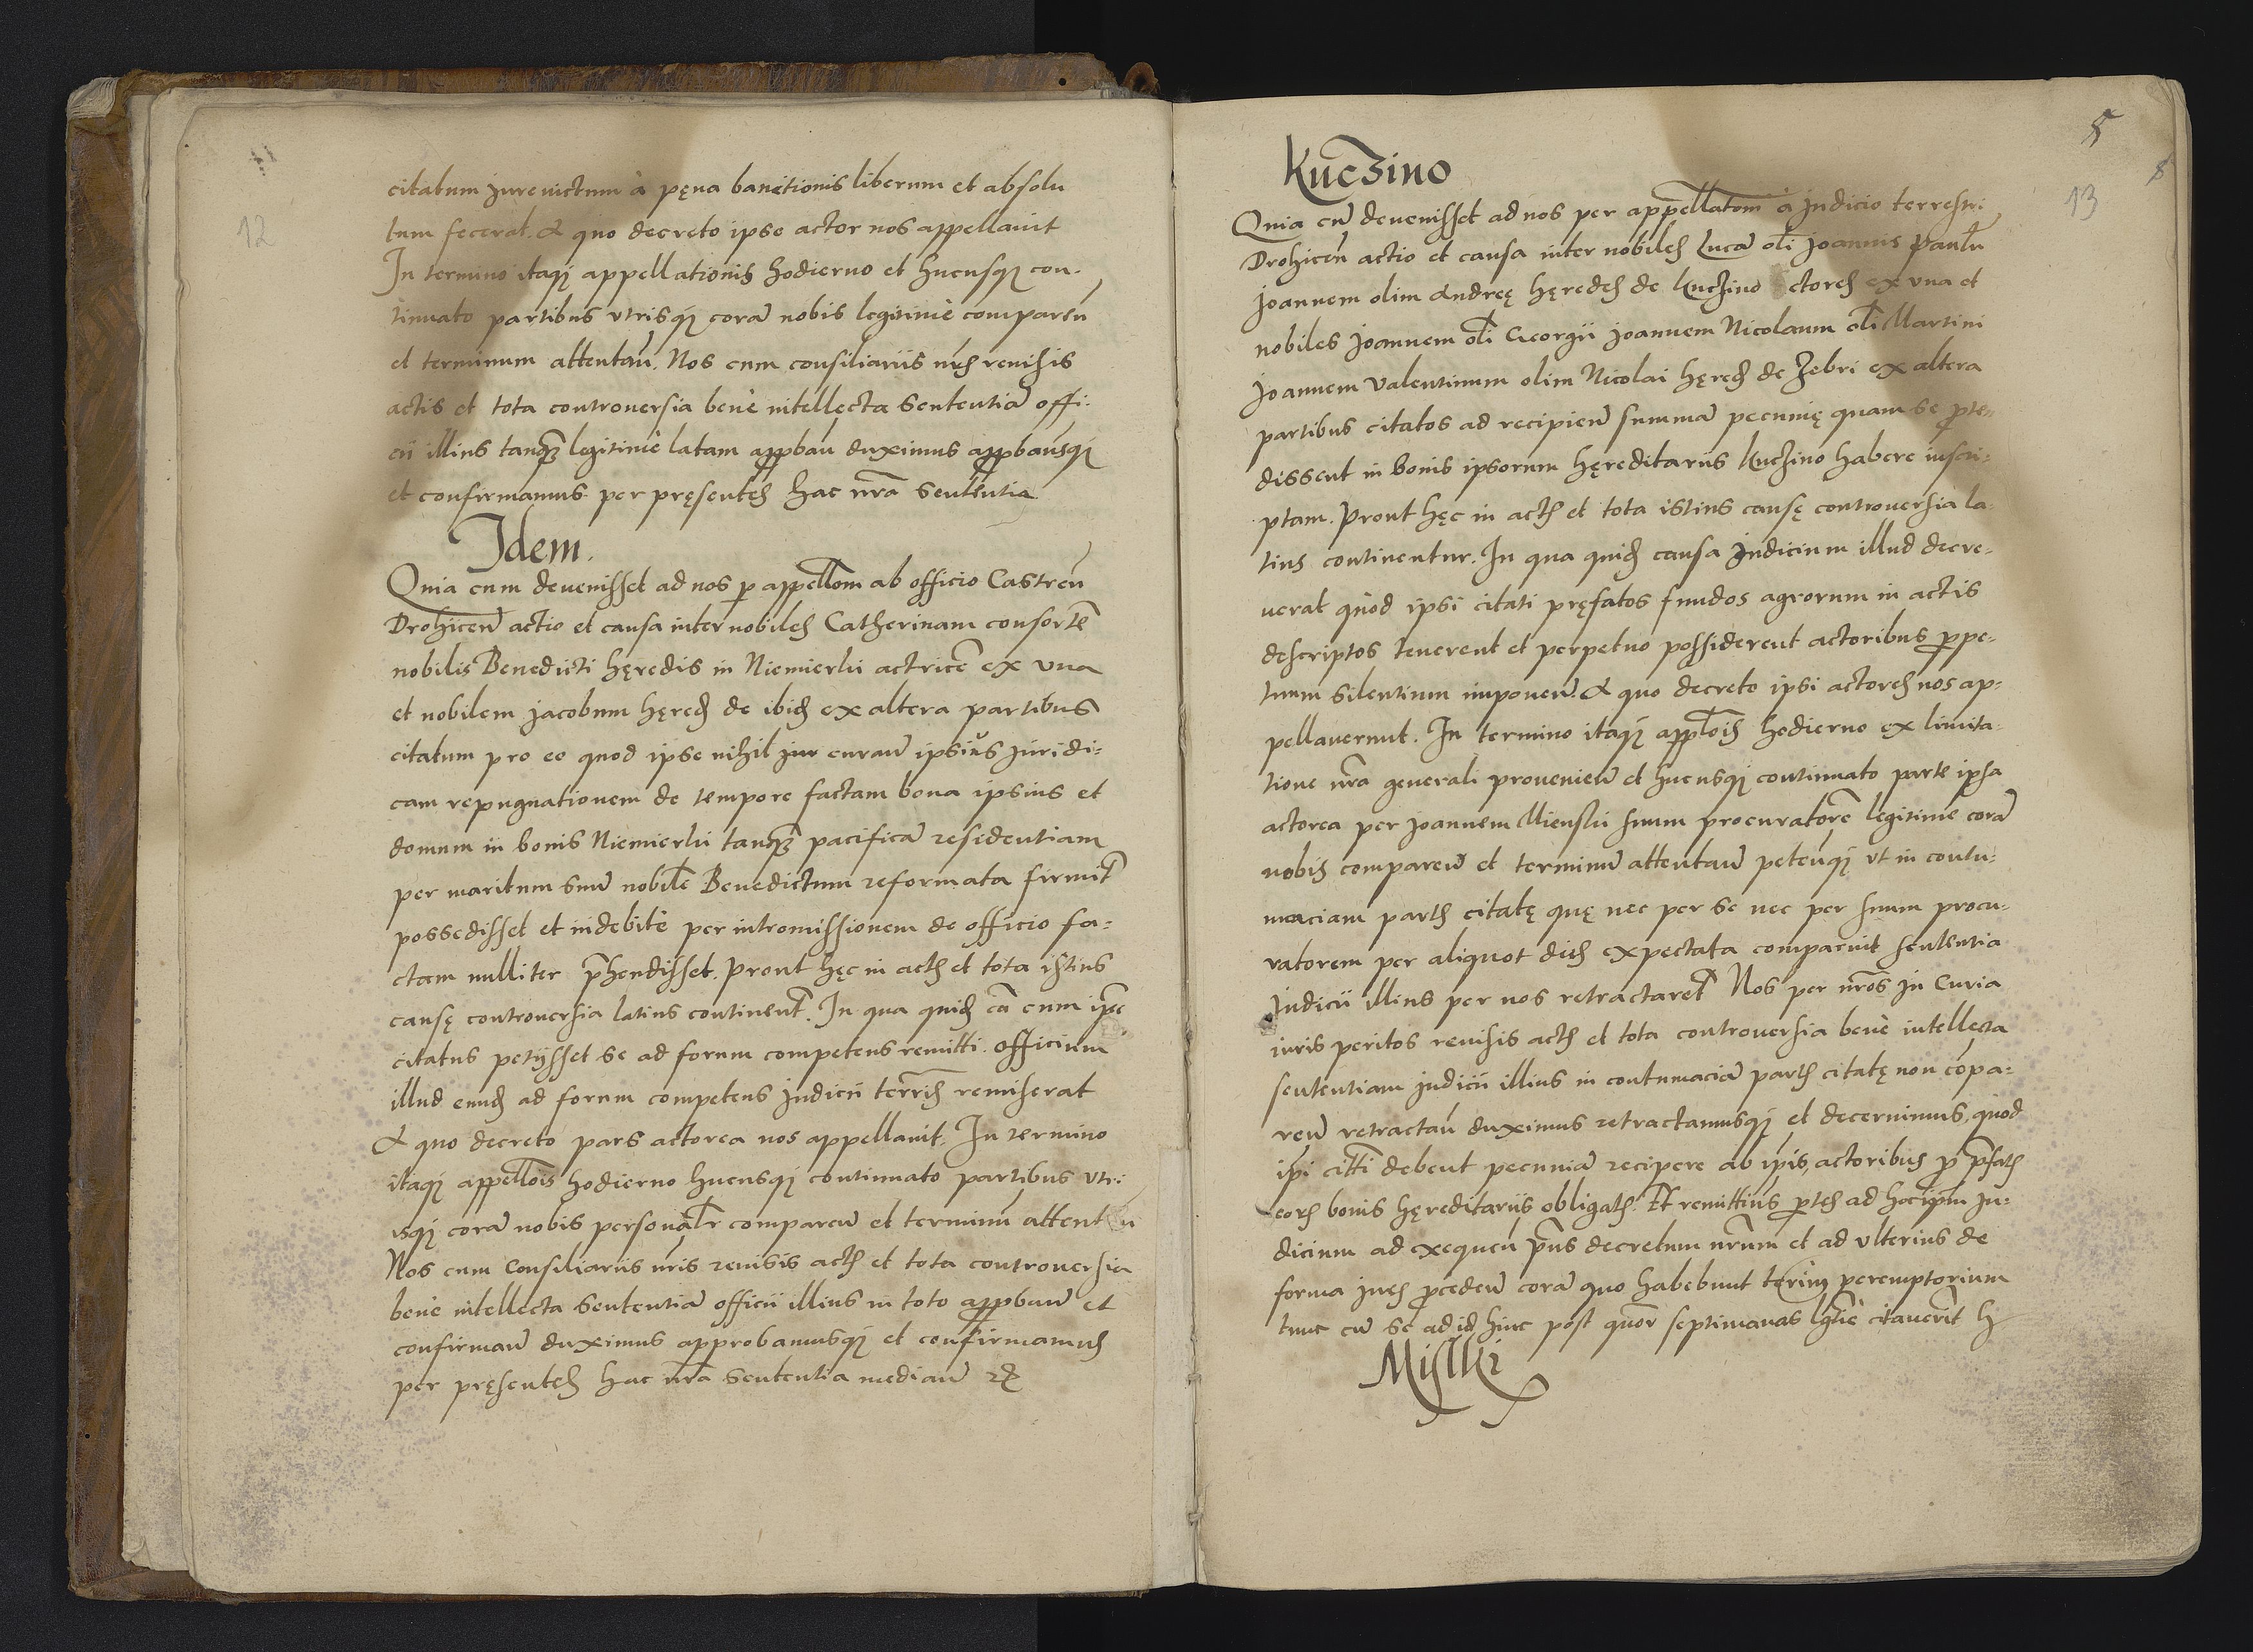 12
citatum iurevictum à pęna banitionis liberum et absolu
tum fecerat. A quo decreto ipse actor nos appellauit
In termino itaqȝ appellationis hodierno et hucusqȝ con-
tinuato partibus vtrisqȝ corā nobis legitimè comparen̄
et terminum attentan̄. Nos cum consiliariis nr̄is reuisis
actis et tota controuersia benè intellecta sententiā offi-
cii illius tanqȝ legitimè latam app̄bān duximus app̄bāusqȝ
et confirmamus per pręsentes hac nr̄a sententia
Idem.
Quia cum deuenisset ad nos p appellōm ab officio Castren̄
Drohicen̄ actio et causa inter nobiles Catherinam consortē
nobilis Benedicti hęredis in Niemierki actricē ex vna
et nobilem Jacobum hęredē de ibidē ex altera partibus
citatum pro eo quod ipse nihil curan̄ ipsius iuridi-
cam repugnationem de tempore factam bona ipsius et
domum in bonis Niemierki tanqȝ pacificā residentiam
per maritum suū nobilē Benedictum reformata firmit̄
possedisset et indebitè per intromissionem de officio fa-
ctam nulliter p̄hendisset. Prout hęc in actis et tota istius
causę controuersia latius continent̄. In qua quidē cā cum ip̄e
citatus petijsset se ad forum competens remitti. officium
illud eundē ad forum competens Judicii terr̄is remiserat
A quo decreto pars actorea nos appellauit. In termino
itaqȝ appellōis hodierno hucusqȝ continuato partibus vtri-
usqȝ corā nobis personalr̄ comparen̄ et terminū attentan̄
Nos cum Consiliariis nr̄is reuisis actis et tota controuersia
benè intellecta sententiā officii illius in toto app̄ban̄ et
confirman̄ duximus approbamusqȝ et confirmamus
per pręsentes hac nr̄a sententia median̄
5
8
13
Kuczino
Quia cū deuenisset ad nos per appellatoni à Judicio terrestri
Drohicen̄ actio et causa inter nobiles Lucā olī Joannis Paulū
Joannem olim Andreę hęredes de Kuczino ctores ex vna et
nobiles Joannem olī Georgii Joannem Nicolaum olī Martini
Joannem Valentinum olim Nicolai hęredē de Zebri ex altera
partibus citatos ad recipien̄ summā pecunię quam se p̄te-
dissent in bonis ipsorum hęreditariis Kuczino habere inscri-
ptam. Prout hęc in actis et tota istius causę controuersia la-
tius continentur. In qua quidē causa Judicium illud decre-
uerat quòd ipsi citati pręfatos fundos agrorum in actis
descriptos tenerent et perpetuo possiderent actoribus p̄pe-
tuum silentium imponen̄. A quo decreto ipsi actores nos ap-
pellauerunt. In termino itaqȝ appl̄ōis hodierno ex limita-
tione nr̄a generali prouenien̄ et hucusqȝ continuato parte ipsa
actorea per Joannem Mienski suum procuratorē legitimè corā
nobis comparen̄ et terminū attentan̄ petenqȝ vt in contu-
maciam partis citatę quę nec per se nec per suum procu-
ratorem per aliquot dies expectata comparuit sententia
Judicii illius per nos retractaret̄ Nos per nr̄os in Curia
iuris peritos reuisis actis et tota controuersia benè intellecta
sententiam Judicii illius in contumaciā partis citatę non cōpa-
ren̄ retractan̄ duximus retractamusqȝ et decernimus, quòd
ip̄i citti debent pecuniā recipere ab ip̄is actoribus p̄ p̄fatis
eorū bonis hęreditariis obligatis. Et remittim̄s p̄tes ad hoc ip̄m Ju-
dicium ad exequen̄ p̄ns decretum nr̄um et ad vlterius de
forma iuris p̄ceden̄ corā quo habebunt terim̄ peremptorium
tunc cū se ad id hinc post quor̄ septimanas lgt̄iè citauerit̄
Miski